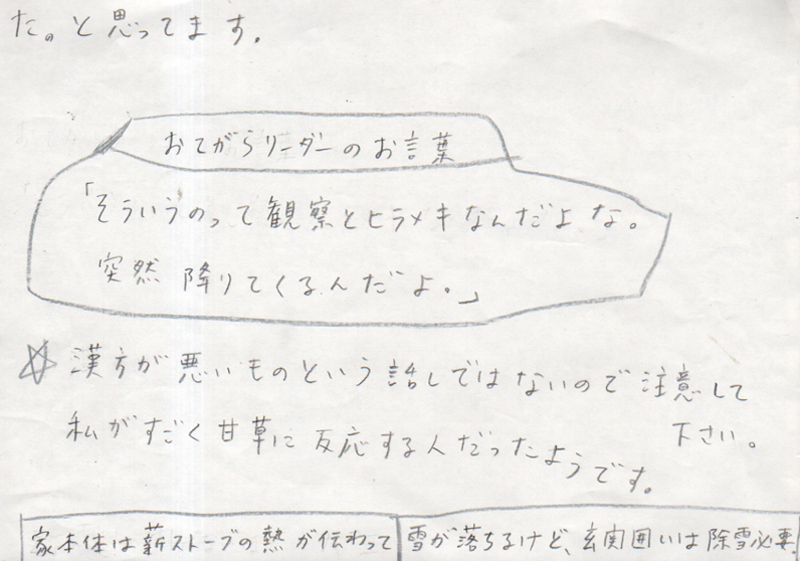 た。と思ってます。
おてがらリーダーのお言葉
「そういうのって観察とヒラメキなんだよな。
突然降りてくるんだよ。」
☆漢方が悪いものという話しではないので注意して
下さい。
私がすごく甘草に反応する人だったようです。
家本体は薪ストーブの熱が伝わって
雪が落ちるけど、玄関囲いは除雪必要